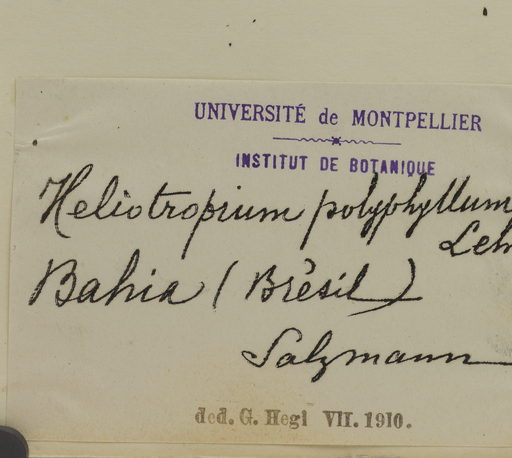 UNIVERSITÉ de MONTPELLIER
INSTITUT DE BOTANIQUE
Heliotropium polyphyllum
Leh
Bahia (Brésil)
Salzmann
ded. G. Hegi VII. 1910.